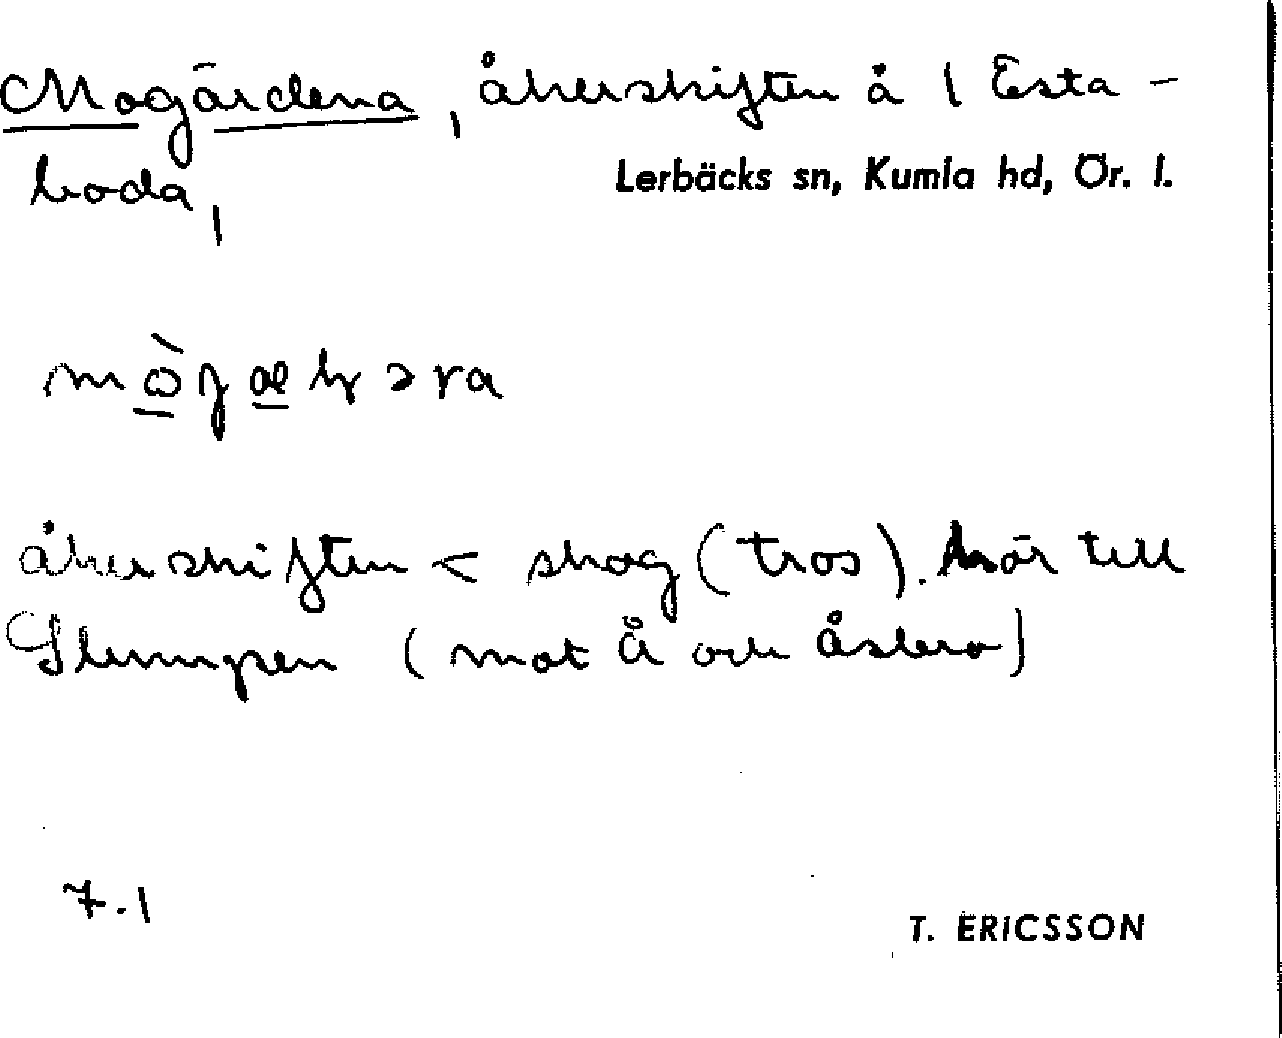 Mogärdena, åkerskiften å 1 Esta-
boda,
Lerbäcks sn, Kumla hd, Ör. l.
åkerskiften < skog (tros). når till
Slumpen (mot Å och Åslero)
7.1
T. ERICSSON